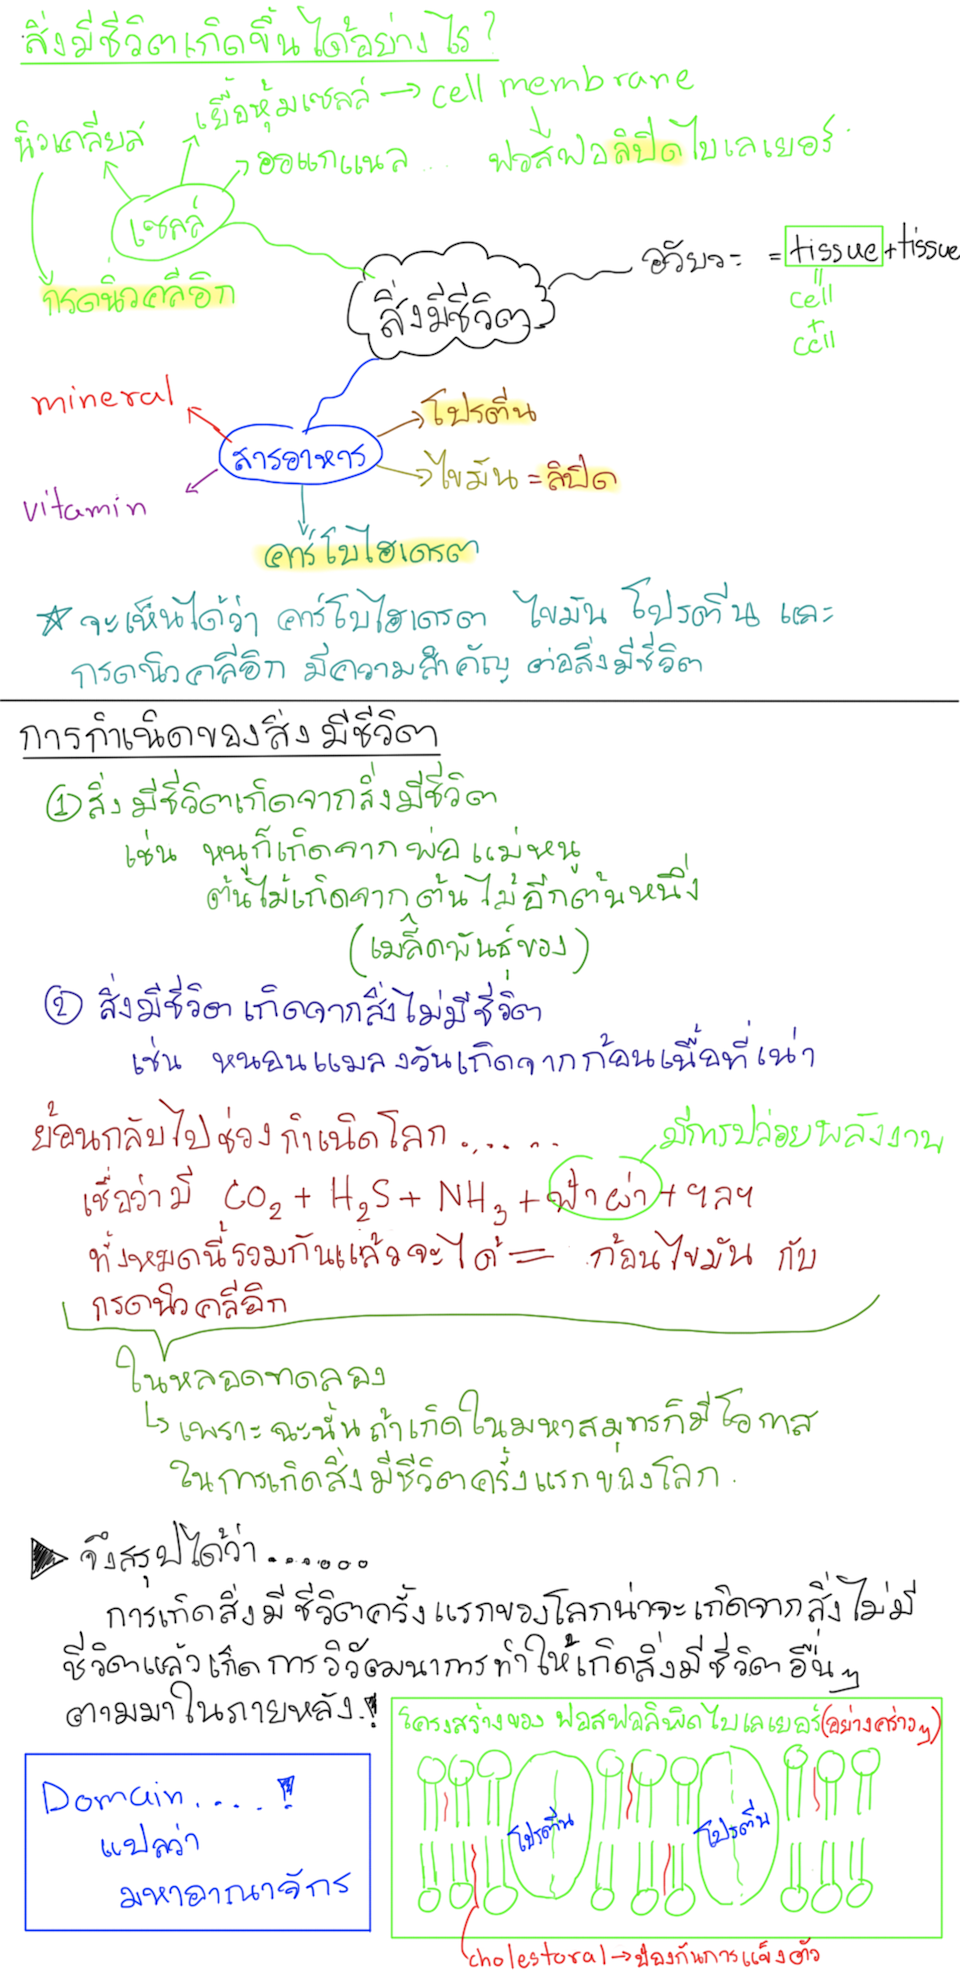 สิ่งมีชีวิตเกิดขึ้นได้อย่างไร?
เยื่อหุ้มเซลล์ → cell membrane
นิวเคลียส
ออแกแนล... ฟอสฟอลิปิดไบเลเยอร์
เซลล์
อวัยวะ = tissue + tissue
กรดนิวคลีอิก
cell
+
cell
สิ่งมีชีวิต
mineral
โปรตีน
สารอาหาร
ไขมัน = ลิปิด
vitamin
คาร์โบไฮเดรต
☆ จะเห็นได้ว่า คาร์โบไฮเดรต ไขมัน โปรตีน และ
กรดนิวคลีอิก มีความสำคัญ ต่อสิ่งมีชีวิต
การกำเนิดของสิ่งมีชีวิต
① สิ่งมีชีวิตเกิดจากสิ่งมีชีวิต
เช่น หนูก็เกิดจากพ่อแม่หนู
ต้นไม้เกิดจากต้นไม้อีกต้นหนึ่ง
(เมล็ดพันธุ์ของ)
② สิ่งมีชีวิตเกิดจากสิ่งไม่มีชีวิต
เช่น หนอนแมลงวันเกิดจากก้อนเนื้อที่เน่า
ย้อนกลับไปช่วงกำเนิดโลก......
มีการปล่อยพลังงาน
เชื่อว่ามี CO₂ + H₂S + NH₃ + ฟ้าผ่า + ฯลฯ
ทั้งหมดนี้รวมกันแล้วจะได้ = ก้อนไขมัน กับ
กรดนิวคลีอิก
ในหลอดทดลอง
↳ เพราะฉะนั้นถ้าเกิดในมหาสมุทรก็มีโอกาส
ในการเกิดสิ่งมีชีวิตครั้งแรกของโลก.
▶ จึงสรุปได้ว่า.......
การเกิดสิ่งมีชีวิตครั้งแรกของโลกน่าจะเกิดจากสิ่งไม่มี
ชีวิตแล้วเกิดการวิวัฒนาการทำให้เกิดสิ่งมีชีวิตอื่นๆ
ตามมาในภายหลัง.!
โครงสร้างของ ฟอสฟอลิพิดไบเลเยอร์ (อย่างคร่าวๆ)
Domain....!
แปลว่า
มหาอาณาจักร
โปรตีน
โปรตีน
cholestoral → ป้องกันการแข็งตัว